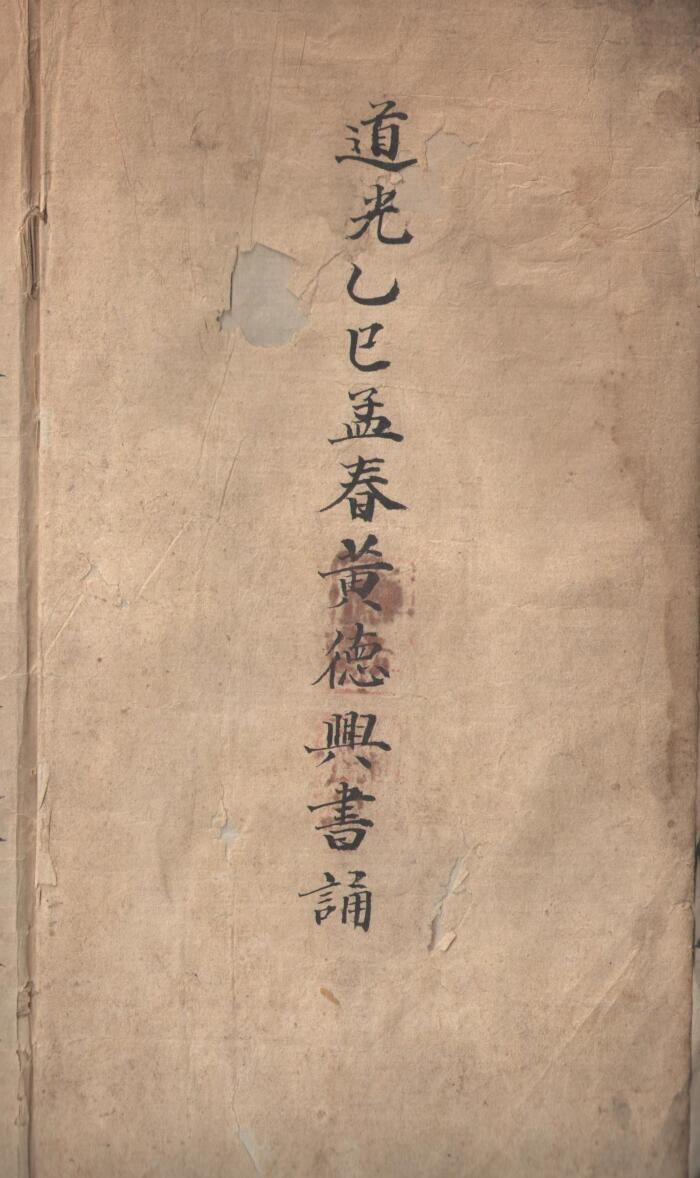 道光乙巳孟春黃德興書誦